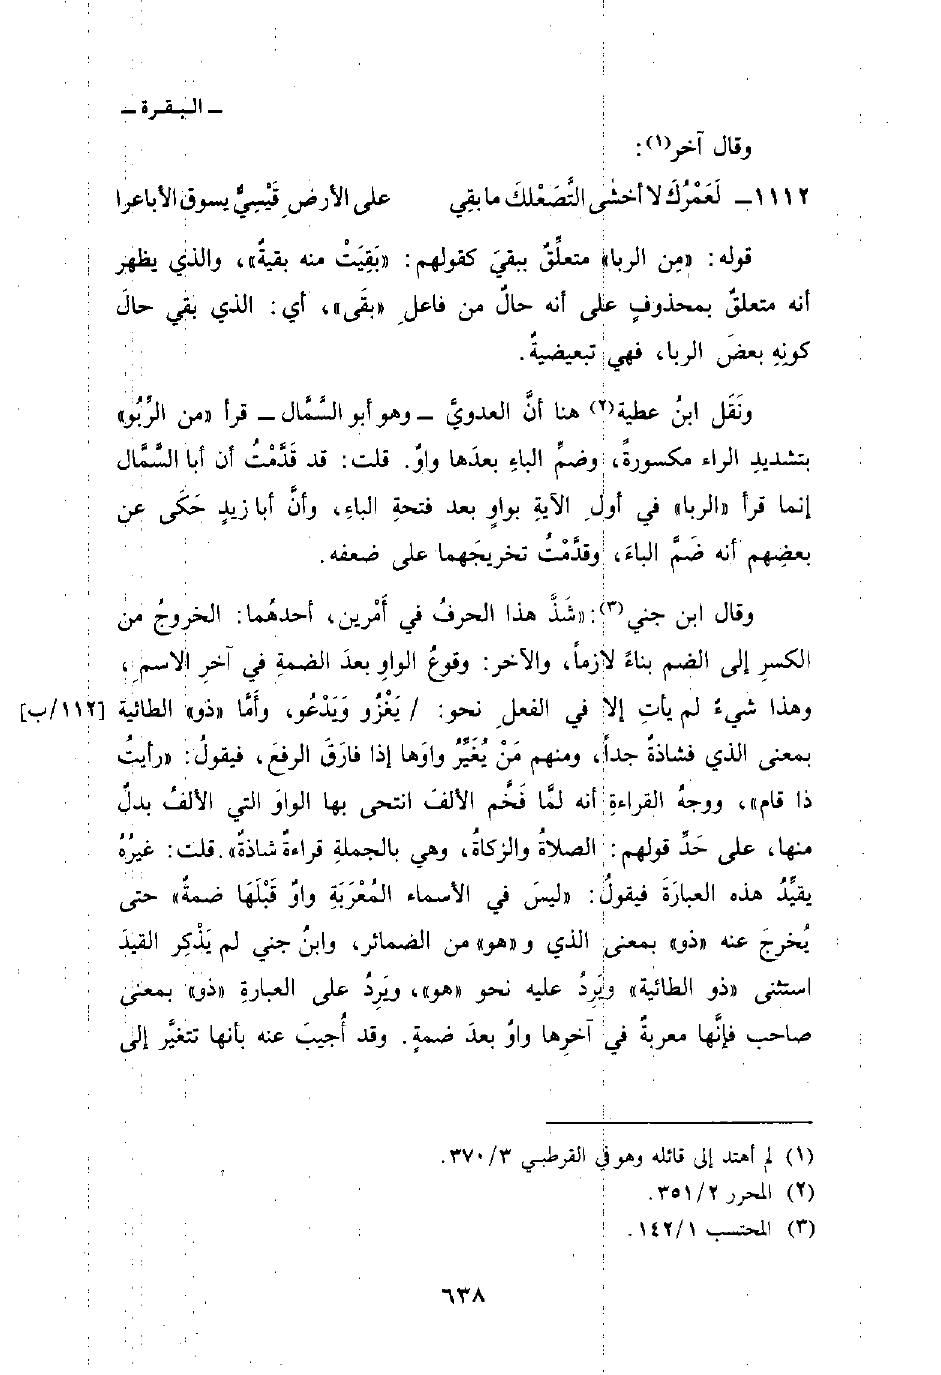 ـ البقرة ـ
وقال آخر(١):
١١١٢ـ لَعَمْرُكَ لا أخشى التَّصَعْلكَ ما بقِي على الأرضِ قَيْسِيٌّ يسوق الأباعرا
قوله: «مِن الربا» متعلِّقٌ ببقيَ كقولهم: «بَقِيَتْ منه بقيةٌ»، والذي يظهر
أنه متعلقٌ بمحذوفٍ على أنه حالٌ من فاعلِ «بقَى»، أي: الذي بقي حالَ
كونِهِ بعضَ الربا، فهي تبعيضيةٌ.
ونَقَل ابنُ عطية(٢) هنا أنَّ العدويَّ ـ وهو أبو السَّمَّال ـ قرأ «من الرِّبُو»
بتشديدِ الراء مكسورةً، وضمِّ الباءِ بعدَها واوٌ. قلت: قد قَدَّمْتُ أن أبا السَّمَّال
إنما قرأ «الربا» في أولِ الآيةِ بواوٍ بعد فتحةِ الباءِ، وأنَّ أبا زيدٍ حَكَى عن
بعضِهم أنه ضَمَّ الباءَ، وقدَّمْتُ تخريجَهما على ضعفه.
وقال ابن جني(٣): «شَذَّ هذا الحرفُ في أَمْرين، أحدهُما: الخروجُ من
الكسرِ إلى الضم بناءً لازماً، والآخر: وقوعُ الواوِ بعدَ الضمةِ في آخرِ الاسمِ،
وهذا شيءٌ لم يأتِ إلا في الفعلِ نحو: / يَغْزُو وَيَدْعُو، وأَمَّا «ذو» الطائية [١١٢/ب]
بمعنى الذي فشاذةٌ جداً، ومنهم مَنْ يُغَيِّرُ واوَها إذا فارَقَ الرفعَ، فيقولُ: «رأيتُ
ذا قام»، ووجهُ القراءةِ أنه لمَّا فَخَّم الألفَ انتحى بها الواوَ التي الألفُ بدلٌ
منها، على حَدِّ قولهم: الصلاةُ والزكاةُ، وهي بالجملةِ قراءةٌ شاذةٌ». قلت: غيرُهُ
يقيِّدُ هذه العبارَةَ فيقولُ: «ليسَ في الأسماء المُعْرَبَةِ واوٌ قَبْلَهَا ضمةٌ» حتى
يُخرجَ عنه «ذو» بمعنى الذي و «هو» من الضمائر، وابنُ جني لم يَذْكرِ القيدَ
استثنى «ذو الطائية» ويَرِدُ عليه نحو «هو»، ويَرِدُ على العبارةِ «ذو» بمعنى
صاحب فإنَّها معربةٌ في آخرِها واوٌ بعدَ ضمةٍ. وقد أُجيبَ عنه بأنها تتغيَّر إلى
(١) لم أهتد إلى قائله وهو في القرطبي ٣/ ٣٧٠.
(٢) المحرر ٢/ ٣٥١.
(٣) المحتسب ١/ ١٤٢.
٦٣٨